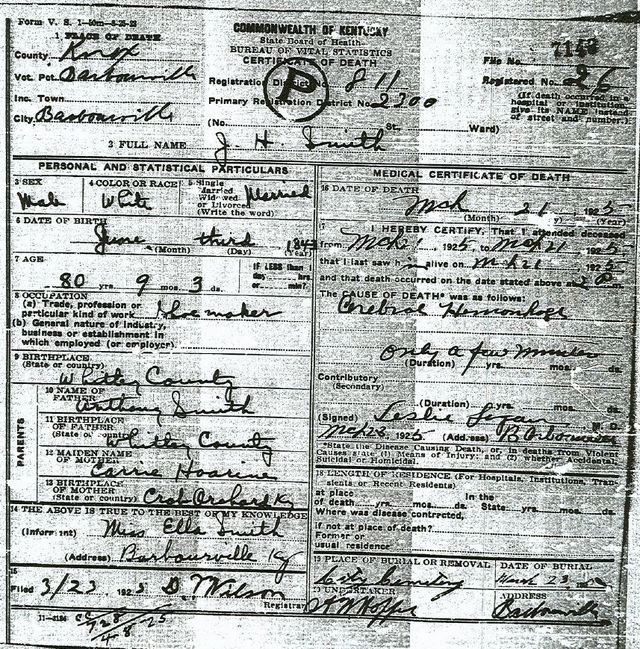 Form V. S. 1-50m-8-25-23
COMMONWEALTH OF KENTUCKY
State Board of Health
BUREAU OF VITAL STATISTICS
CERTIFICATE OF DEATH
1 PLACE OF DEATH
County Knox
Vot. Pct. Barbourville
Inc. Town
City Barbourville
P
Registration District 811
Primary Registration District No. 2300
(No. St. Ward)
File No. 7143
Registered No. 26
(If death occurred in a
hospital or institution,
give its NAME instead
of street and number.)
2 FULL NAME J. H. Smith
PERSONAL AND STATISTICAL PARTICULARS
3 SEX
Male
4 COLOR OR RACE
White
5 Single
Married
Widowed
or Divorced
(Write the word)
Married
6 DATE OF BIRTH
June third 184
(Month) (Day) (Year)
7 AGE
80 yrs. 9 mos. 3 ds.
IF LESS than
day, hrs.
or min.?
8 OCCUPATION
(a) Trade, profession or
particular kind of work Shoe maker
(b) General nature of industry,
business or establishment in
which employed (or employer)
9 BIRTHPLACE
(State or country)
Whitley County
PARENTS
10 NAME OF
FATHER
Anthony Smith
11 BIRTHPLACE
OF FATHER
(State or country)
Whitley County
12 MAIDEN NAME
OF MOTHER
Carrie
13 BIRTHPLACE
OF MOTHER
(State or country) Crab Orchard Ky
14 THE ABOVE IS TRUE TO THE BEST OF MY KNOWLEDGE
(Informant) Miss Ella Smith
(Address) Barbourville Ky
15
Filed 3/23 192 D. Wilson
Registrar
11-3184
MEDICAL CERTIFICATE OF DEATH
16 DATE OF DEATH
Mch 21 1925
(Month) (Day) (Year)
17 I HEREBY CERTIFY, That I attended deceased
from Mch 21 1925, to Mch 21 1925
that I last saw him alive on Mch 21 1925
and that death occurred on the date stated above at 2 P
The CAUSE OF DEATH* was as follows:
Cerebral Hemorrhage
Only a few minutes
(Duration) yrs. mos. ds.
Contributory
(Secondary)
(Duration) yrs. mos. ds.
(Signed) Leslie Logan M. D.
Mch 23 1925 (Address) Barbourville
*State the Disease Causing Death, or, in deaths from Violent
Causes state (1) Means of Injury; and (2) whether Accidental,
Suicidal or Homicidal.
18 LENGTH OF RESIDENCE (For Hospitals, Institutions, Tran-
sients or Recent Residents)
At place In the
of death yrs. mos. ds. State yrs. mos. ds.
Where was disease contracted,
if not at place of death?
Former or
usual residence
19 PLACE OF BURIAL OR REMOVAL DATE OF BURIAL
City Cemetery March 23
20 UNDERTAKER ADDRESS
Barbourville